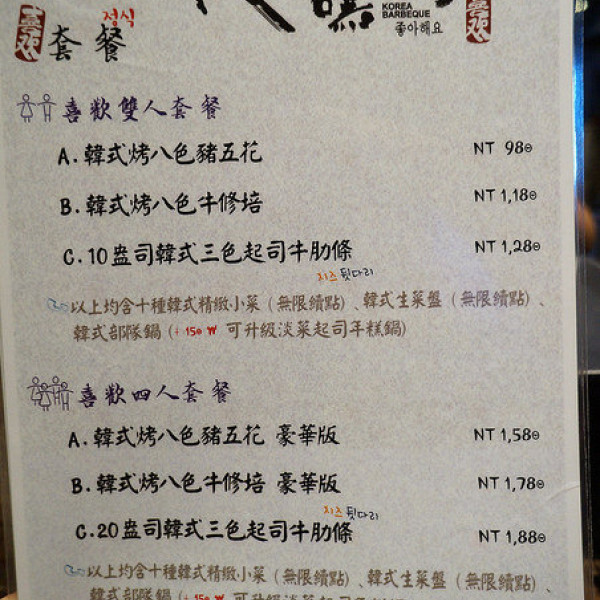 喜欢
정식
套餐
KOREA
BARBEQUE
좋아해요
喜欢
喜歡雙人套餐
A.韓式烤八色豬五花 NT 980
B.韓式烤八色牛修培 NT 1,180
C.10盎司韓式三色起司牛肋條 NT 1,280
치즈 뒷다리
以上均含十種韓式精緻小菜(無限續點)、韓式生菜盤(無限續點)、
韓式部隊鍋(+150₩可升級淡菜起司年糕鍋)
喜歡四人套餐
A.韓式烤八色豬五花 豪華版 NT 1,580
B.韓式烤八色牛修培 豪華版 NT 1,780
치즈 뒷다리
C.20盎司韓式三色起司牛肋條 NT 1,880
以上均含十種韓式精緻小菜(無限續點)、韓式生菜盤(無限續點)、
韓式部隊鍋(+150₩可升級淡菜起司